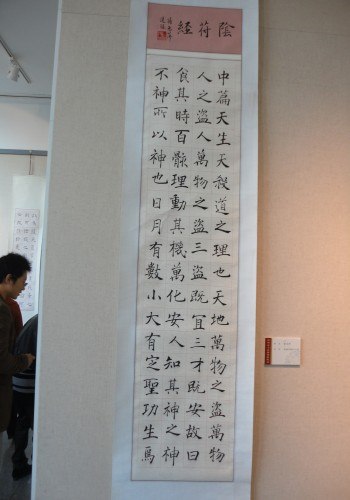 陰符經
中篇天生天殺道之理也天地萬物之盜萬物
人之盜人萬物之盜三盜既宜三才既安故曰
食其時百骸理動其機萬化安人知其神之神
不神所以神也日月有數小大有定聖功生焉